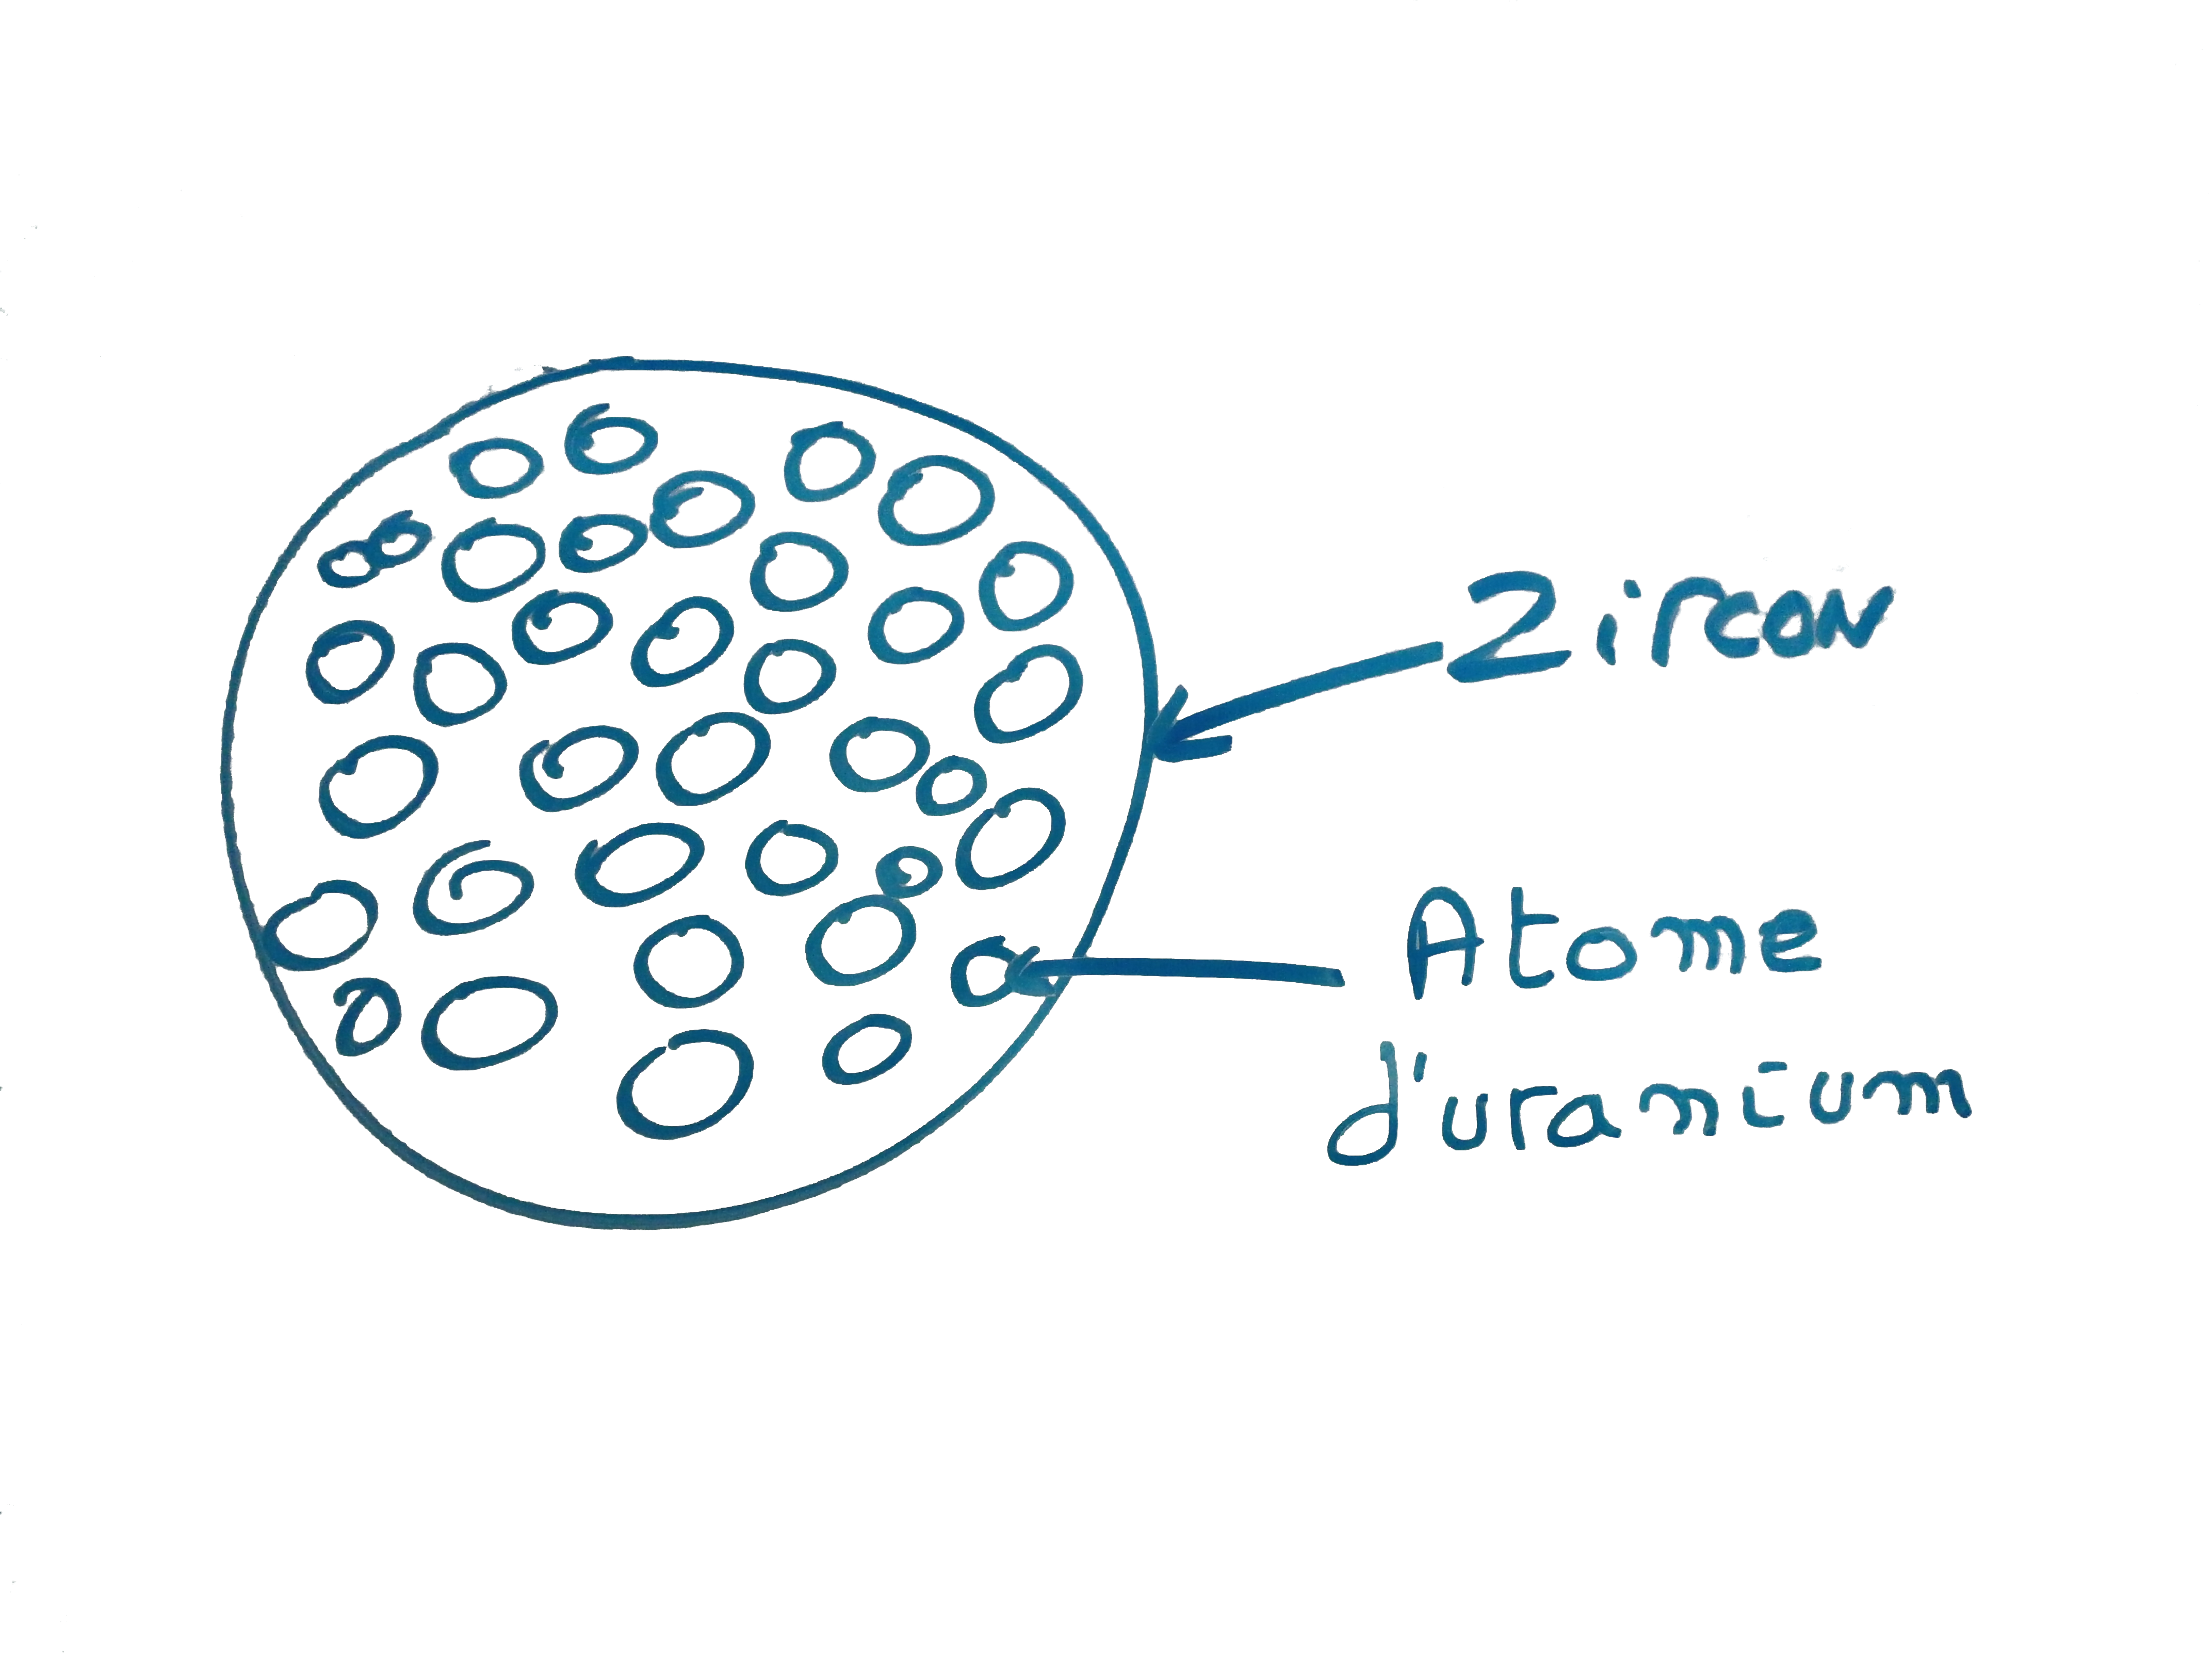 Zircon
Atome
d'uranium